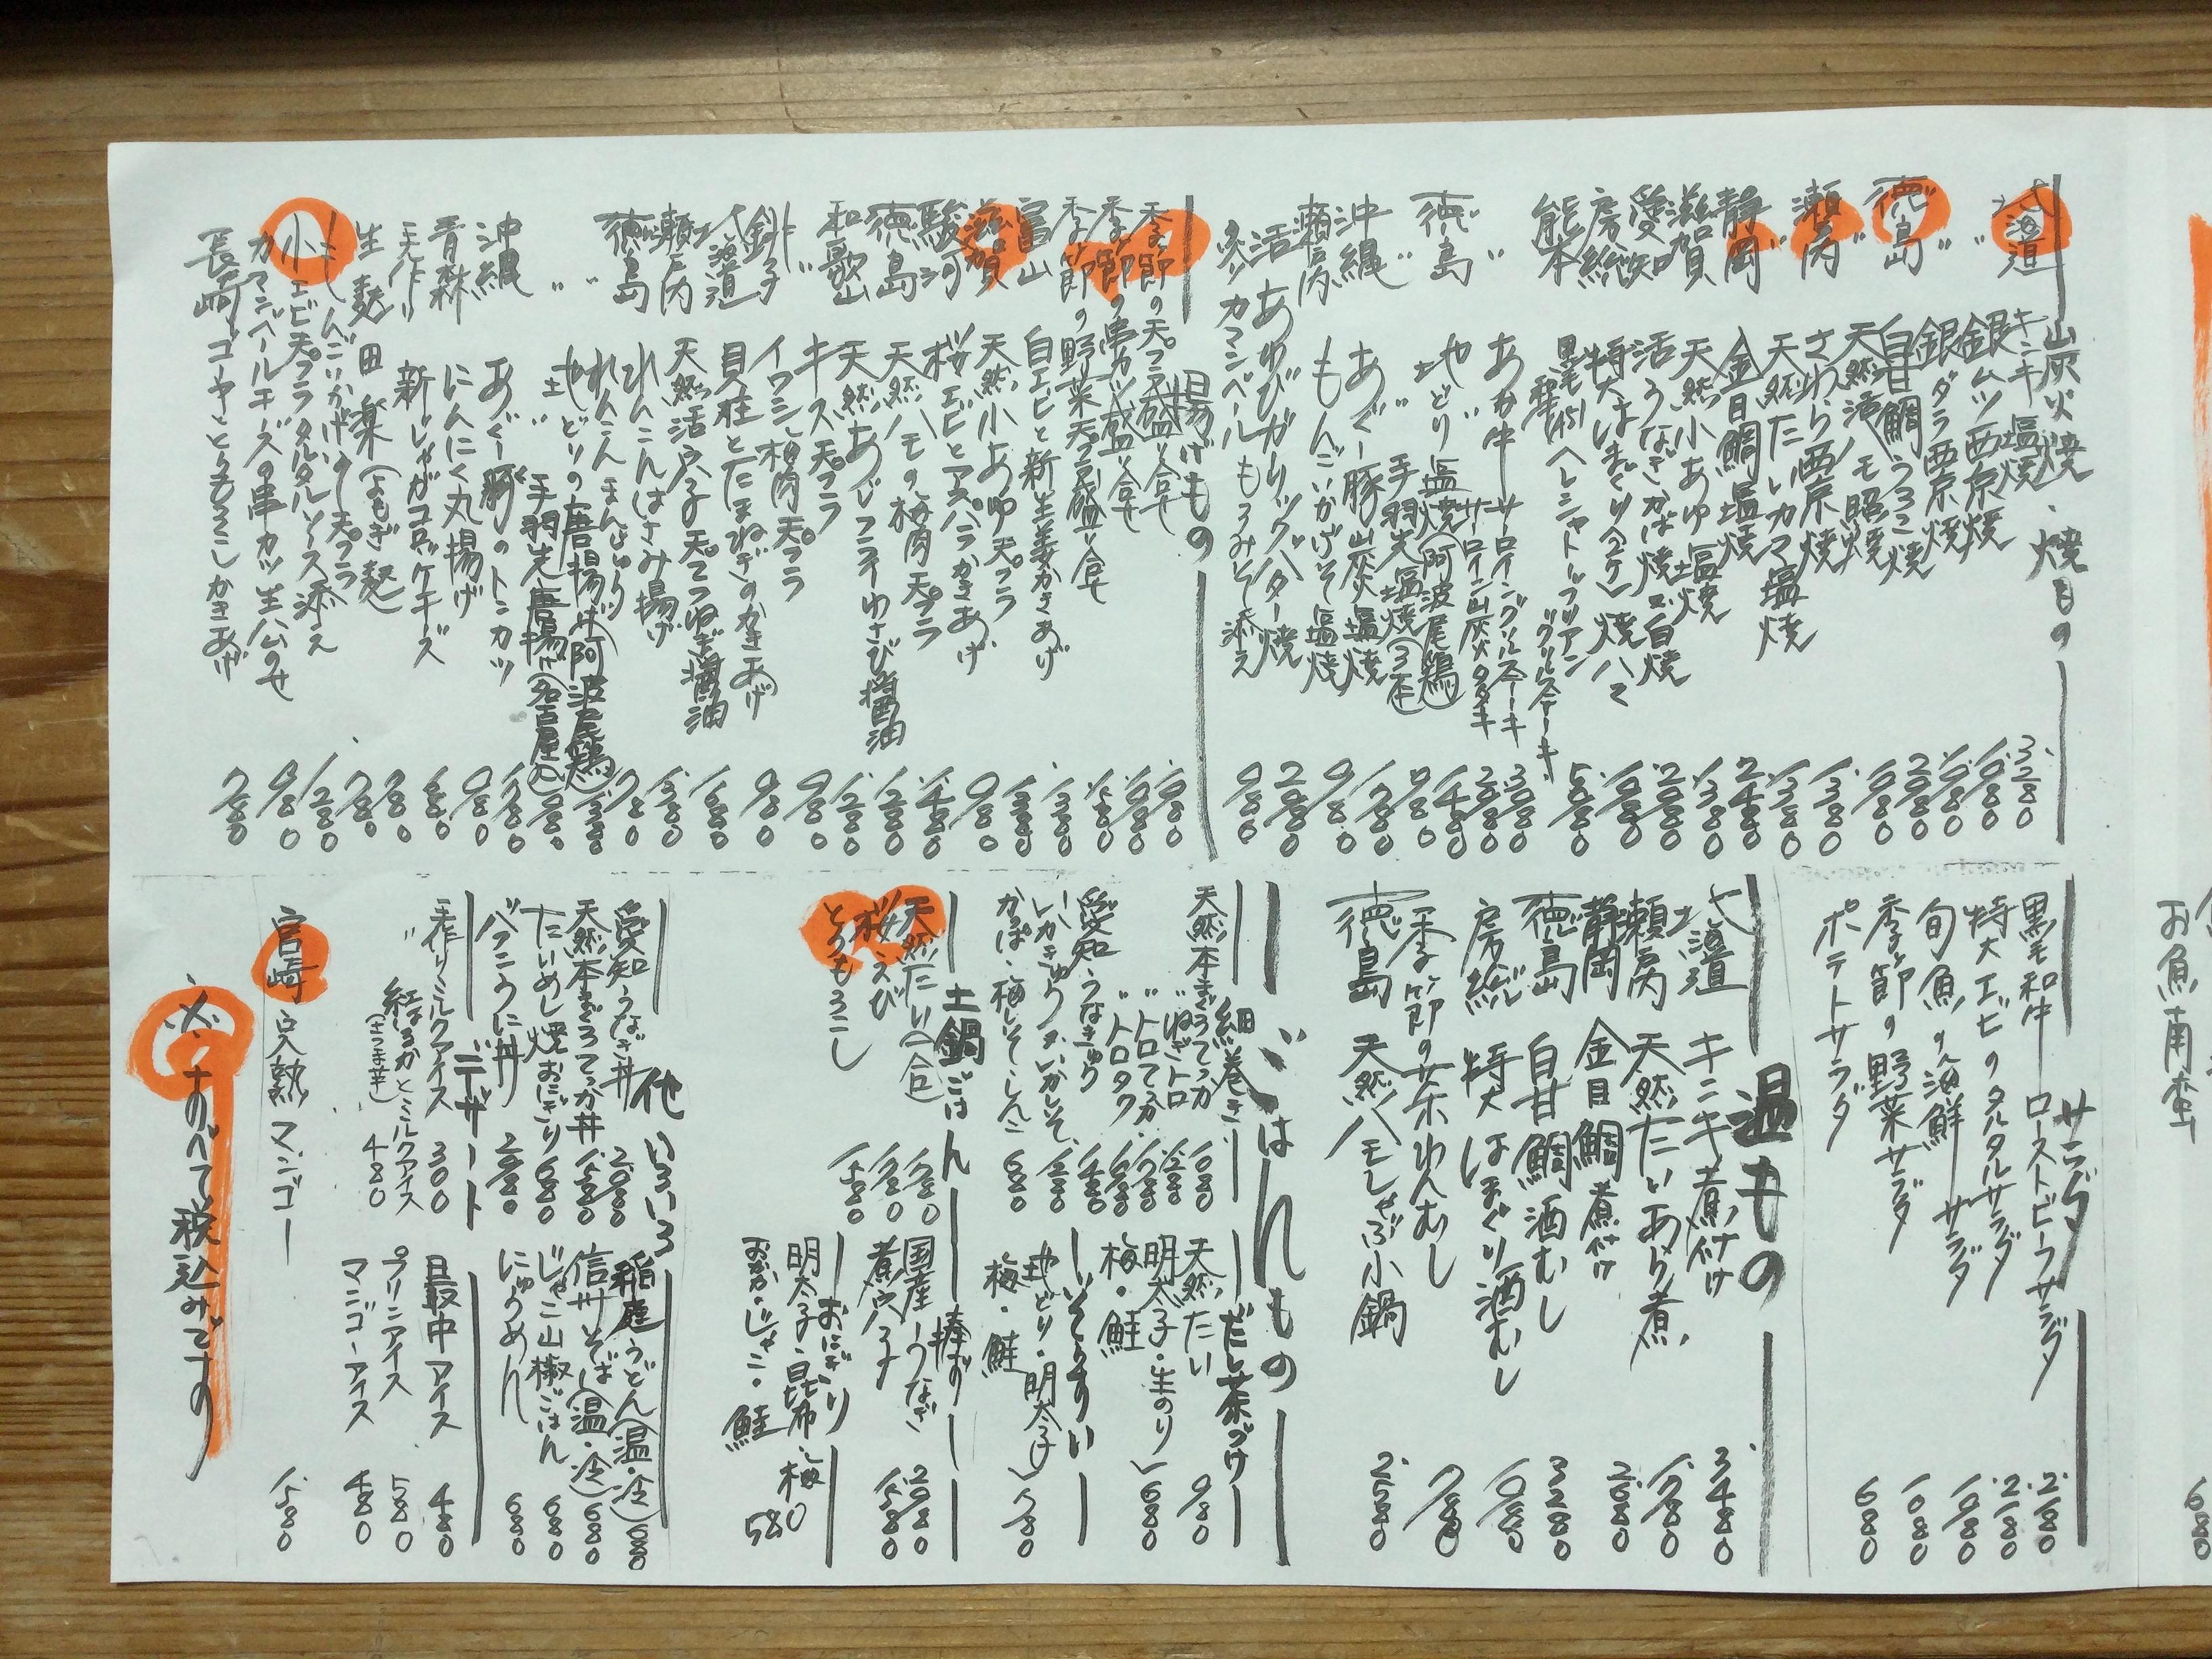 炭火焼・焼もの
北海道 キンキ塩焼 3.280
〃 銀ムツ西京焼 1.980
銀ダラ西京焼 1.980
徳島 白甘鯛うろこ焼 2.980
〃 天然活ハモ照焼 1.980
瀬戸内 さわら西京焼 1.380
〃 天然たいカマ塩焼 1.380
静岡 金目鯛塩焼 2.480
滋賀 天然小あゆ塩焼 1.380
愛知 活うなぎかば焼or白焼 2.980
房総 特大はまぐり 焼ハマ 1.080
熊本 黒毛和牛 ヘレシャトーブリアン グリルステーキ 5.980
〃 あか牛 サーロイングリルステーキ 3.080
サーロイン山炭火タタキ 2.980
徳島 地どり塩焼(阿波尾鶏) 1.480
〃 〃 手羽先塩焼(3本) 980
沖縄 あぐー豚炭火塩焼 1.780
瀬戸内 もんごいかげそ塩焼 980
活あわびガーリックバター焼 2.980
炙りカマンベールもろみみそ添え 980
揚げもの
季節の天プラ盛り合せ 1.980
季節の串カツ盛り合せ 1.980
季節の野菜天プラ盛り合せ 1.580
富山 白エビと新生姜かきあげ 1.380
滋賀 天然小あゆ天プラ 1.380
駿河 桜エビとアスパラかきあげ 980
徳島 天然ハモの梅肉天プラ 1.480
和歌山 天然あじフライわさび醤油 1.280
〃 キス天プラ 1.280
銚子 イワシ梅肉天プラ 980
北海道 貝柱とたまねぎのかきあげ 980
瀬戸内 天然活穴子天プラねぎ醤油 1.680
徳島 れんこんはさみ揚げ 1.380
〃 れんこんまんじゅう 780
〃 地どりの唐揚げ(阿波尾鶏) 1.380
〃 手羽先唐揚げ(名古屋風) 980
沖縄 あぐー豚のトンカツ 1.780
青森 にんにく丸揚げ 980
手作り 新じゃがコロッケチーズ 680
生麩田楽(よもぎ麩) 780
もんごいかげその天プラ 780
小エビ天プラタルタルソース添え 1.280
カマンベールチーズの串カツ生ハムのせ 980
長崎 ゴーヤととうもろこしかきあげ 780
サラダ
黒毛和牛ローストビーフサラダ 2.180
特大エビのタルタルサラダ 2.180
旬魚の海鮮サラダ 1.980
季節の野菜サラダ 1.080
ポテトサラダ 680
温もの
北海道 キンキ煮付け 3.480
瀬戸内 天然たいあら煮 1.780
静岡 金目鯛煮付け 2.680
徳島 白甘鯛酒むし 3.280
房総 特大はまぐり酒むし 1.080
季節の茶わんむし 780
徳島 天然ハモしゃぶ小鍋 2.580
ごはんもの
細巻き
天然本まぐろてっか 1.080
〃 ねぎトロ 1.280
〃 トロてっか 1.780
〃 トロタク 1.680
愛知うなきゅう 1.480
いかきゅうorいかしそ 1.280
かっぱ・梅しそ・しんこ 680
だし茶づけ
天然たい 980
明太子・生のり
梅・鮭 680
いそぞうすい
地どり・明太子
梅・鮭 1.580
土鍋ごはん
天然たい(一合) 1.780
桜えび 1.780
とうもろこし 1.580
棒ずし
国産うなぎ 2.980
煮穴子 1.580
おにぎり
明太子・昆布・梅
おかか・じゃこ・鮭 580
他いろいろ
愛知うなぎ丼 2.980
天然本まぐろてっか丼 1.580
たいめし焼おにぎり 680
バフンうに丼 2.980
稲庭うどん(温・冷) 680
信州そば(温・冷) 680
じゃこ山椒ごはん 680
にゅうめん 680
デザート
手作りミルクアイス 300
〃 紅はるかとミルクアイス 480
(さつま芋)
最中アイス 480
プリンアイス 580
マンゴーアイス 480
宮崎 完熟マンゴー 1.580
※すべて税込みです
お魚南蛮
680